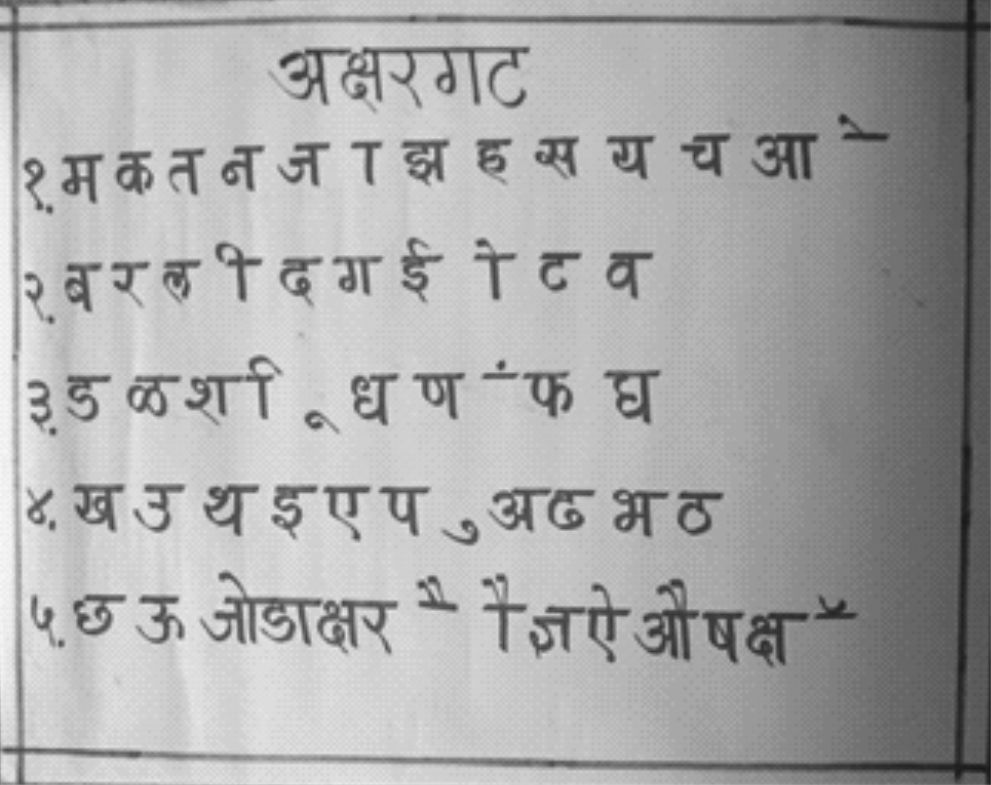 अक्षरगट
१. म क त न ज ा झ ह स य च आ े
२. ब र ल ी द ग ई ो ट व
३. ड ळ श ि ू ध ण ं फ घ
४. ख उ थ इ ए प ु अ ढ भ ठ
५. छ ऊ जोडाक्षर ै ौ ज्ञ ऐ औ ष क्ष ृ